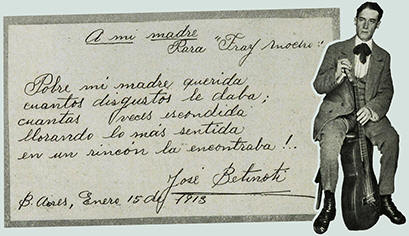 A mi madre
Para "Fray Mocho":
Pobre mi madre querida
cuantos disgustos le daba;
cuantas veces escondida
llorando lo más sentida
en un rincón la encontraba!..
José Betinoti
B. Aires, Enero 15 de 1913